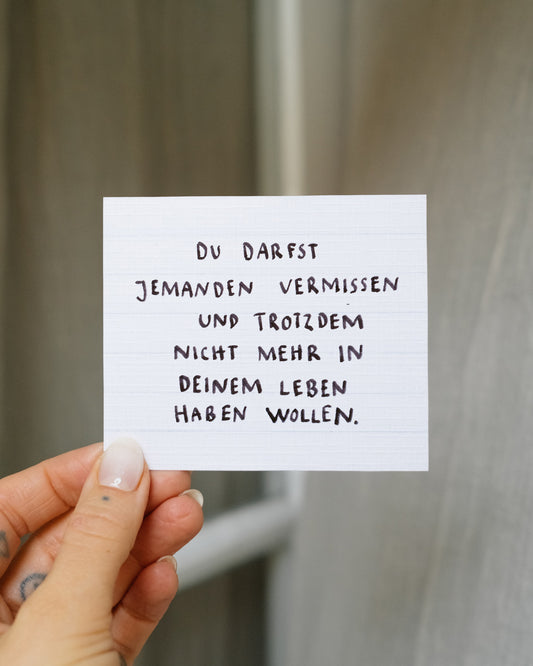 DU DARFST
JEMANDEN VERMISSEN
UND TROTZDEM
NICHT MEHR IN
DEINEM LEBEN
HABEN WOLLEN.